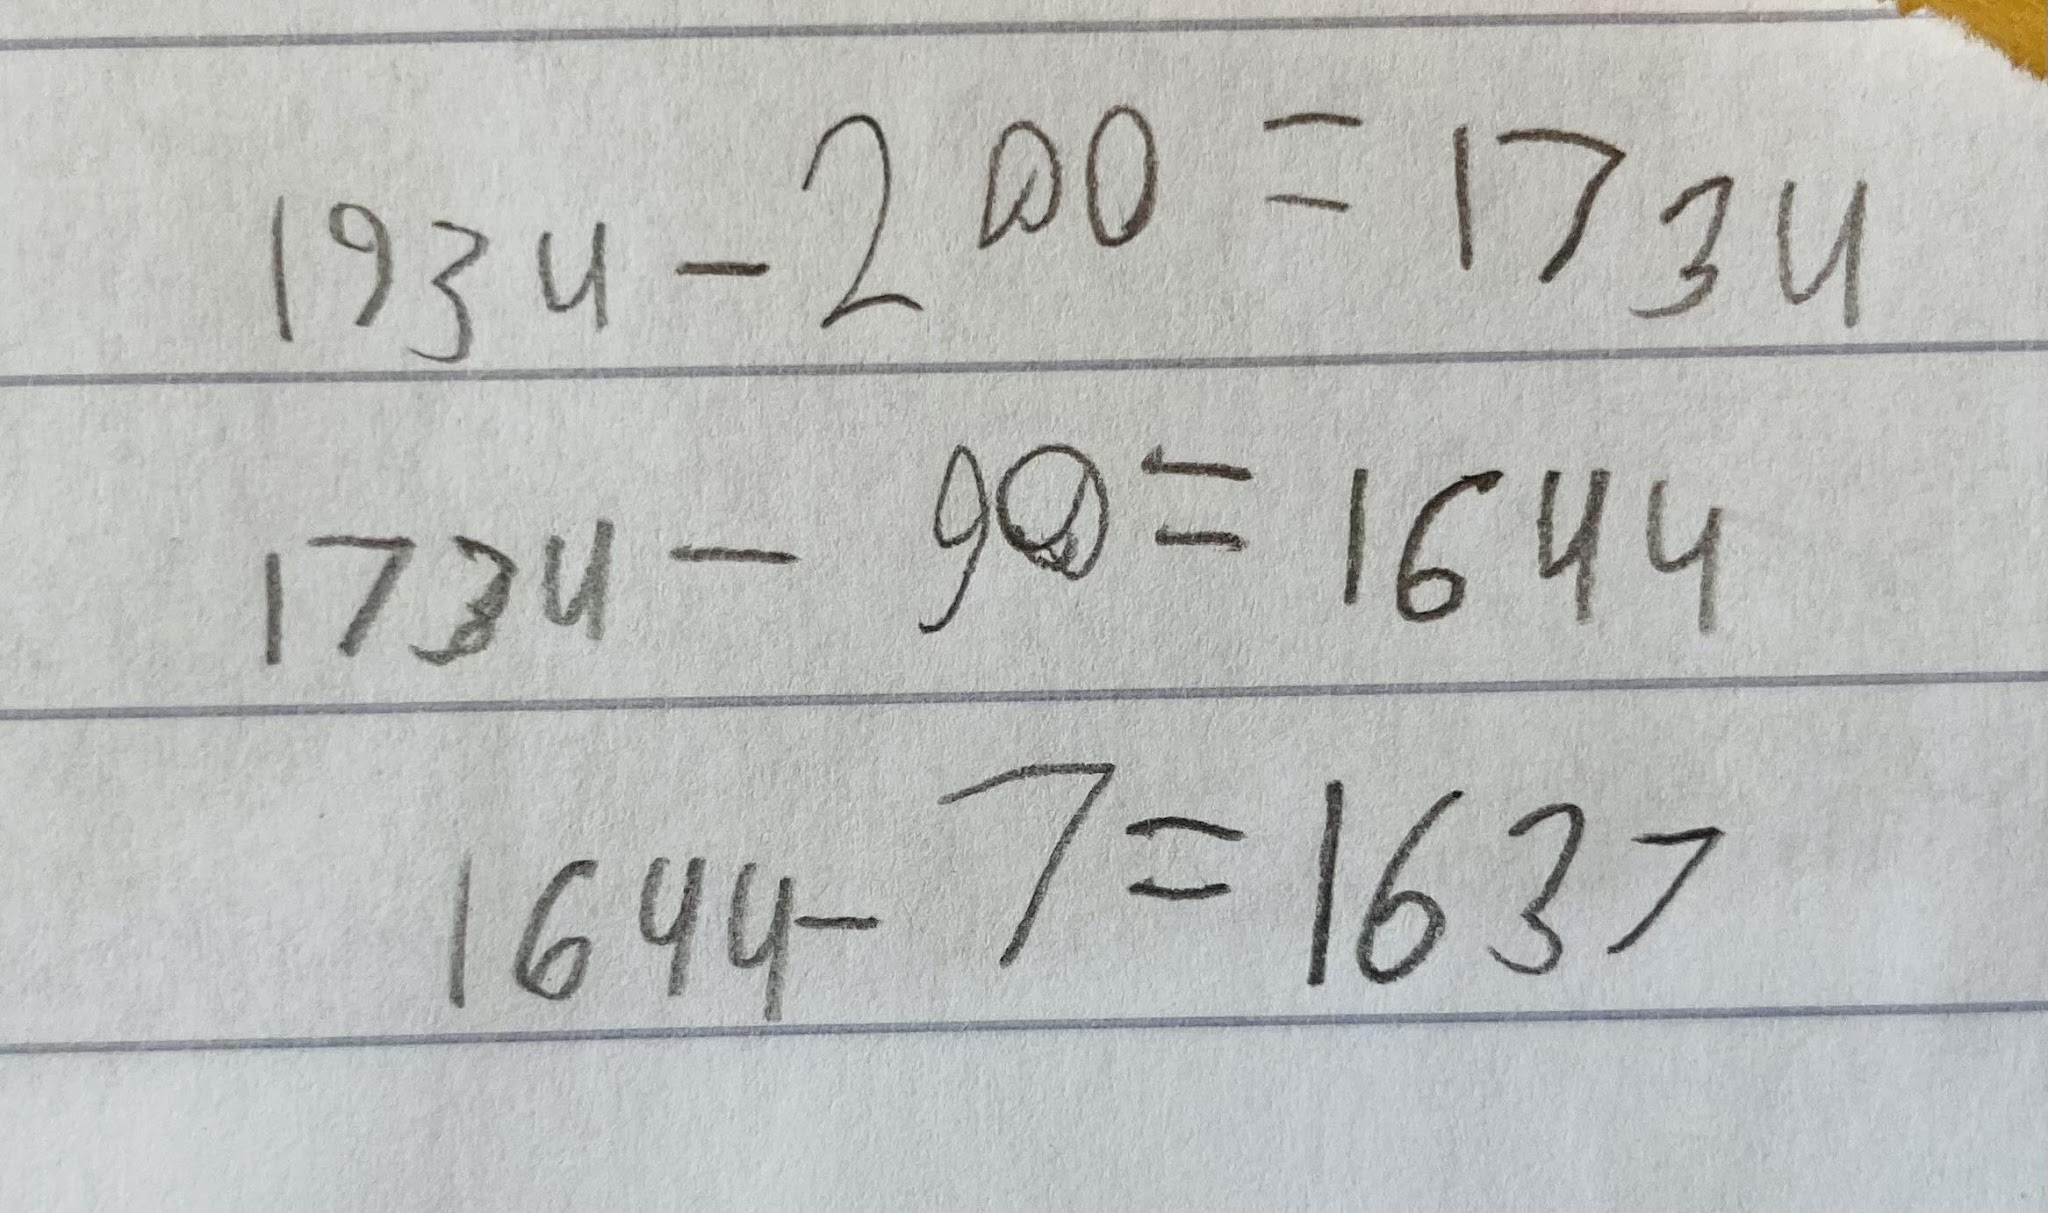 1934 - 200 = 1734
1734 - 90 = 1644
1644 - 7 = 1637